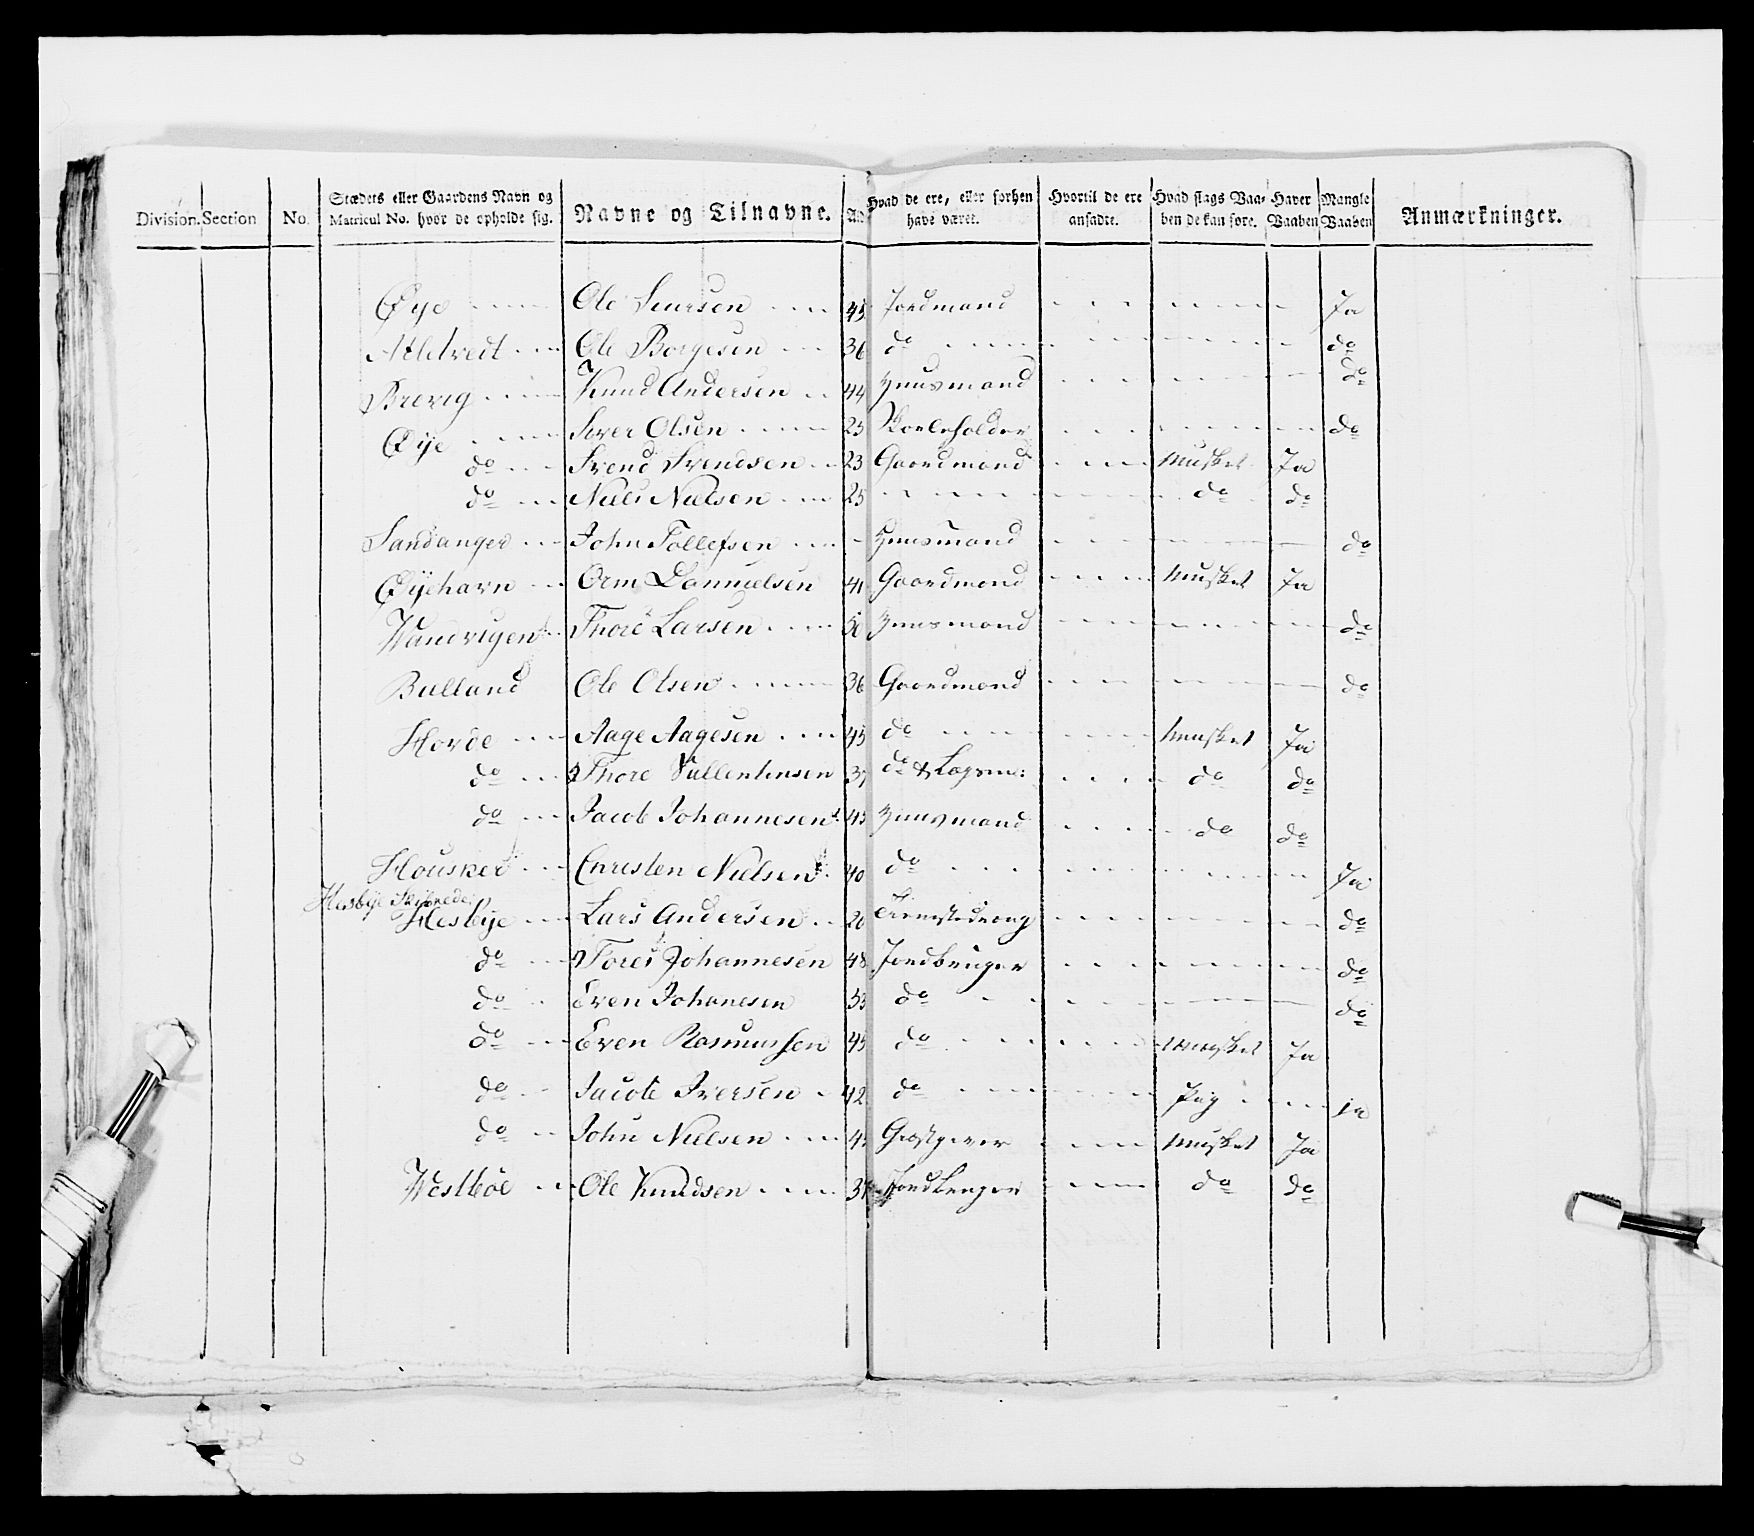 Division. Section No. Stædets eller Gaardens Navn og Matricul No. hvor de opholde sig. Navne og Tilnavne. Ald. Hvad de ere, eller forhen have været. Hvortil de ere ansadte. Hvad slags Vaaben de kan føre. Haver Vaaben Mangle Vaaben Anmærkninger.
Øye Ole 45 Jordmand Ja
Ole Borgesen 36 do do
Brevig Knud Andersen 44 Huusmand do
Øÿe Siver Olsen 23 do
do Svend Svendsen 23 Gaardmand Musket Ja
do Niels Nielsen 25 do do
Sandanger John Tollefsen Huusmand do
Øÿehavn Orm Dannielsen 41 Gaardmand Musket Ja
Thore Larsen 50 Huusmand do
Bulland Ole Olsen 36 Gaardmand do
Hovde Aage Aagesen 45 do Musket Ja
do Thore Vallentinsen 37 do & do do
do Jacob Johannesen 43 Huusmand do do
Housker Christen Nielsen 40 do Ja
Hesbÿe
Hesbÿe Lars Andersen 20 do
do Tores Johannesen 48 Jordbruger do
do Even Johanesen 53 do do
do Even Rasmussen 45 do Musket Ja
do Jacob Iversen 42 do Ja
do John Nielsen Giæstgiver Musket Ja
Westbøe Ole Knudsen Jordbruger do do